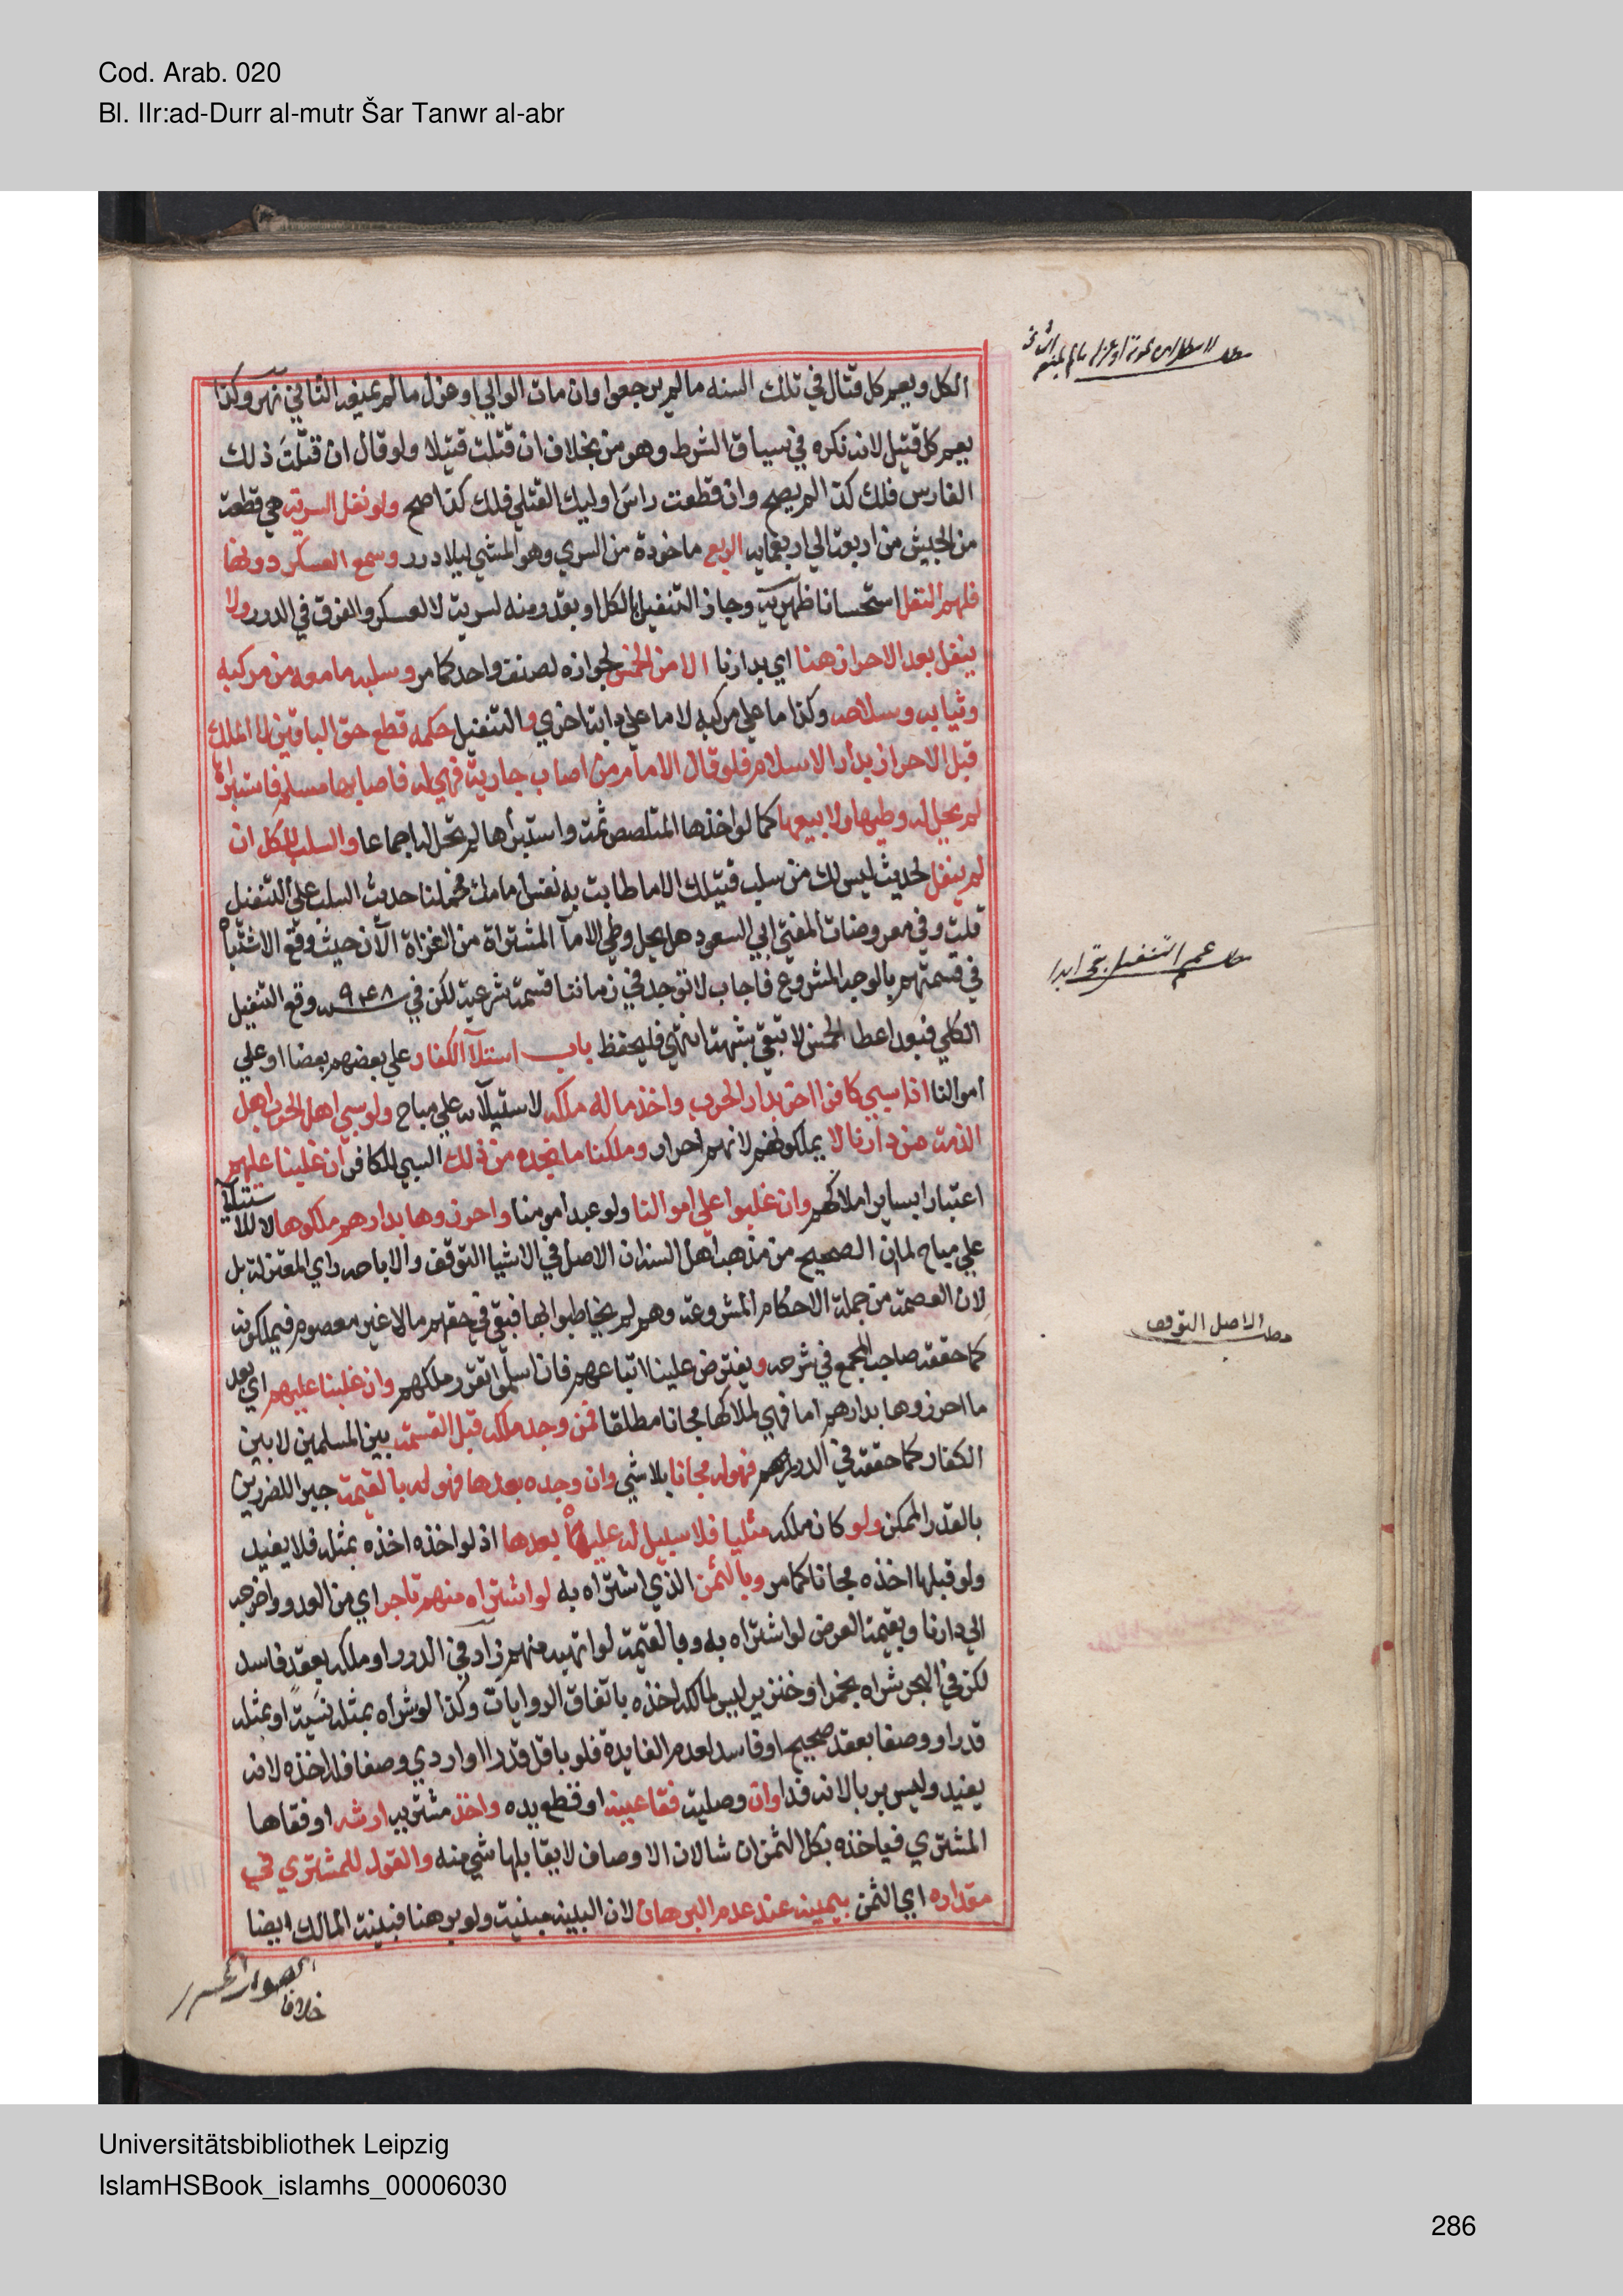 Cod. Arab. 020
Bl. IIr:ad-Durr al-mutr Šar Tanwr al-abr
الكل ويعم كل قتال في تلك السنه مالم يرجعوا وان مات الوالي او عزل مالم يمنعه الثاني نهر وكذا
يعم كل قتيل لانه نكره في سياق الشرط وهو من بخلاف ان قتلت قتيلا ولو قال ان قتلت ذلك
الفارس فلك كذا لم يصح وان قطعت راس اوليك القتلي فلك كذا صح ولو نفل السرية هي قطعة
من الجيش من اربعة الي اربعمايه الربع ماخودة من السري وهو المشي ليلا درر وسمع العسكر دونها
فلهم النفل استحسانا ظهيرية وجاز التنفيل بالكل او بقدر منه لسرية لا لعسكر والفرق في الدرر ولا
ينفل بعد الاحراز هنا اي بدارنا الا من الخمس لجوازه لصنف واحد كما مر وسلبه ما معه من مركبه
وثيابه وسلاحه وكذا ما علي مركبه لا ما علي دابة اخري و التنفيل حكمه قطع حق الباقين لا الملك
قبل الاحراز بدار الاسلام فلو قال الامام من اصاب جارية فهي له فاصابها مسلم فاستبراها
لم يحل له وطيها ولا بيعها كما لو اخذها المتلصص ثمة واستبرأها لم تحل له اجماعا والسلب للكل ان
لم ينفل لحديث ليس لك من سلب قتيلك الا ما طابت به نفس امامك فحملنا حديث السلب علي التنفيل
قلت وفي معروضات المفتي ابي السعود هل يحل وطي الاماء المشتراة من الغزاة الآن حيث وقع الاشتباه
في قسمتهم بالوجه المشروع فاجاب لا توجد في زماننا قسمة شرعية لكن في سنه ٩٤٨ وقع التنفيل
الكلي فبعد اعطا الخمس لا تبقي شبهة انتهي فليحفظ باب استيلاء الكفار علي بعضهم بعضا او علي
اموالنا اذا سبي كافر كافرا اخر بدار الحرب واخذ ماله ملكه لاستيلائه علي مباح ولو سبي اهل الحرب اهل
الذمة من دارنا لا يملكونهم لانهم احرار وملكنا ما نجده من ذلك السبي للكافر ان غلبنا عليهم
اعتبارا بساير املاكهم وان غلبوا علي اموالنا ولو عبدا مومنا واحرزوها بدارهم ملكوها لا للاستيلاء
علي مباح لما ان الصحيح من مذهب اهل السنة ان الاصل في الاشيا التوقف والاباحه راي المعتزلة بل
لان العصمة من جملة الاحكام المشروعة وهم لم يخاطبوا بها فبقي في حقهم مالا غير معصوم فيملكونه
كما حققه صاحب المجمع في شرحه ويفترض علينا اتباعهم فان اسلموا تقرر ملكهم وان غلبنا عليهم اي بعد
ما احرزوها بدارهم اما فهي لملاكها مجانا مطلقا فمن وجد ملكه قبل القسمة بين المسلمين لا بين
الكفار كما حققه في الدرر فهو له مجانا بلا شي وان وجده بعدها فهو له بالقيمة جبرا للضررين
بالقدر الممكن ولو كان ملكه مثليا فلا سبيل له عليه بعدها اذ لو اخذه اخذه بمثله فلا يفيد
ولو قبلها اخذه مجانا كما مر وبالثمن الذي اشتراه به لو اشتراه منهم تاجر اي من العدو واخرجه
الي دارنا وبقيمة العرض لو اشتراه به وبالقيمة لو اتهبه منهم زاد في الدرر او ملكه بعقد فاسد
لكن في البحر شراه بخمر او خنزير ليس لمالكه اخذه باتفاق الروايات وكذا لو شراه بمثله نسية او بمثله
قدرا ووصفا بعقد صحيح او فاسد لعدم الفايدة فلو باقل قدرا او اردي وصفا فله اخذه لانه
يفيد وليس بربا لانه فدا وان وصلية فقا عينه او قطع يده واخذ مشتريه ارشه او فقاها
المشتري فياخذه بكل الثمن ان شا لان الاوصاف لا يقابلها شي منه والقول للمشتري في
مقداره اي الثمن بيمينه عند عدم البرهان لان البينة مبينة ولو برهنا فبينة المالك ايضا
خلافا
عم التنفيل بقي ابدا
الاصل التوقف
Universitätsbibliothek Leipzig
IslamHSBook_islamhs_00006030
286